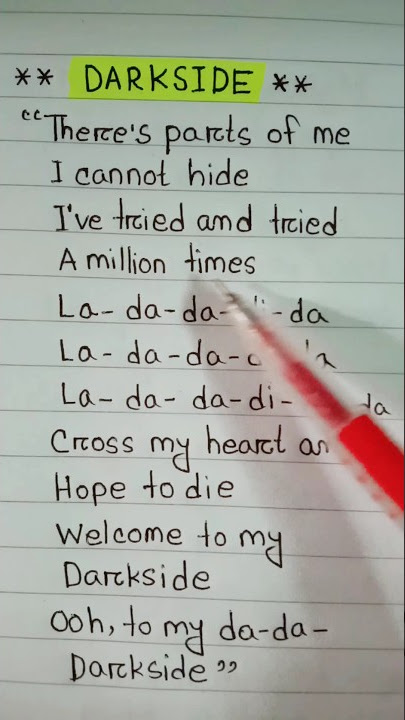 ** DARKSIDE **
“There's parts of me
I cannot hide
I've tried and tried
A million times
La- da-da- -da
La- da-da-
La- da- da-di- da
Cross my heart
Hope to die
Welcome to my
Darkside
Ooh, to my da-da-
Darkside”